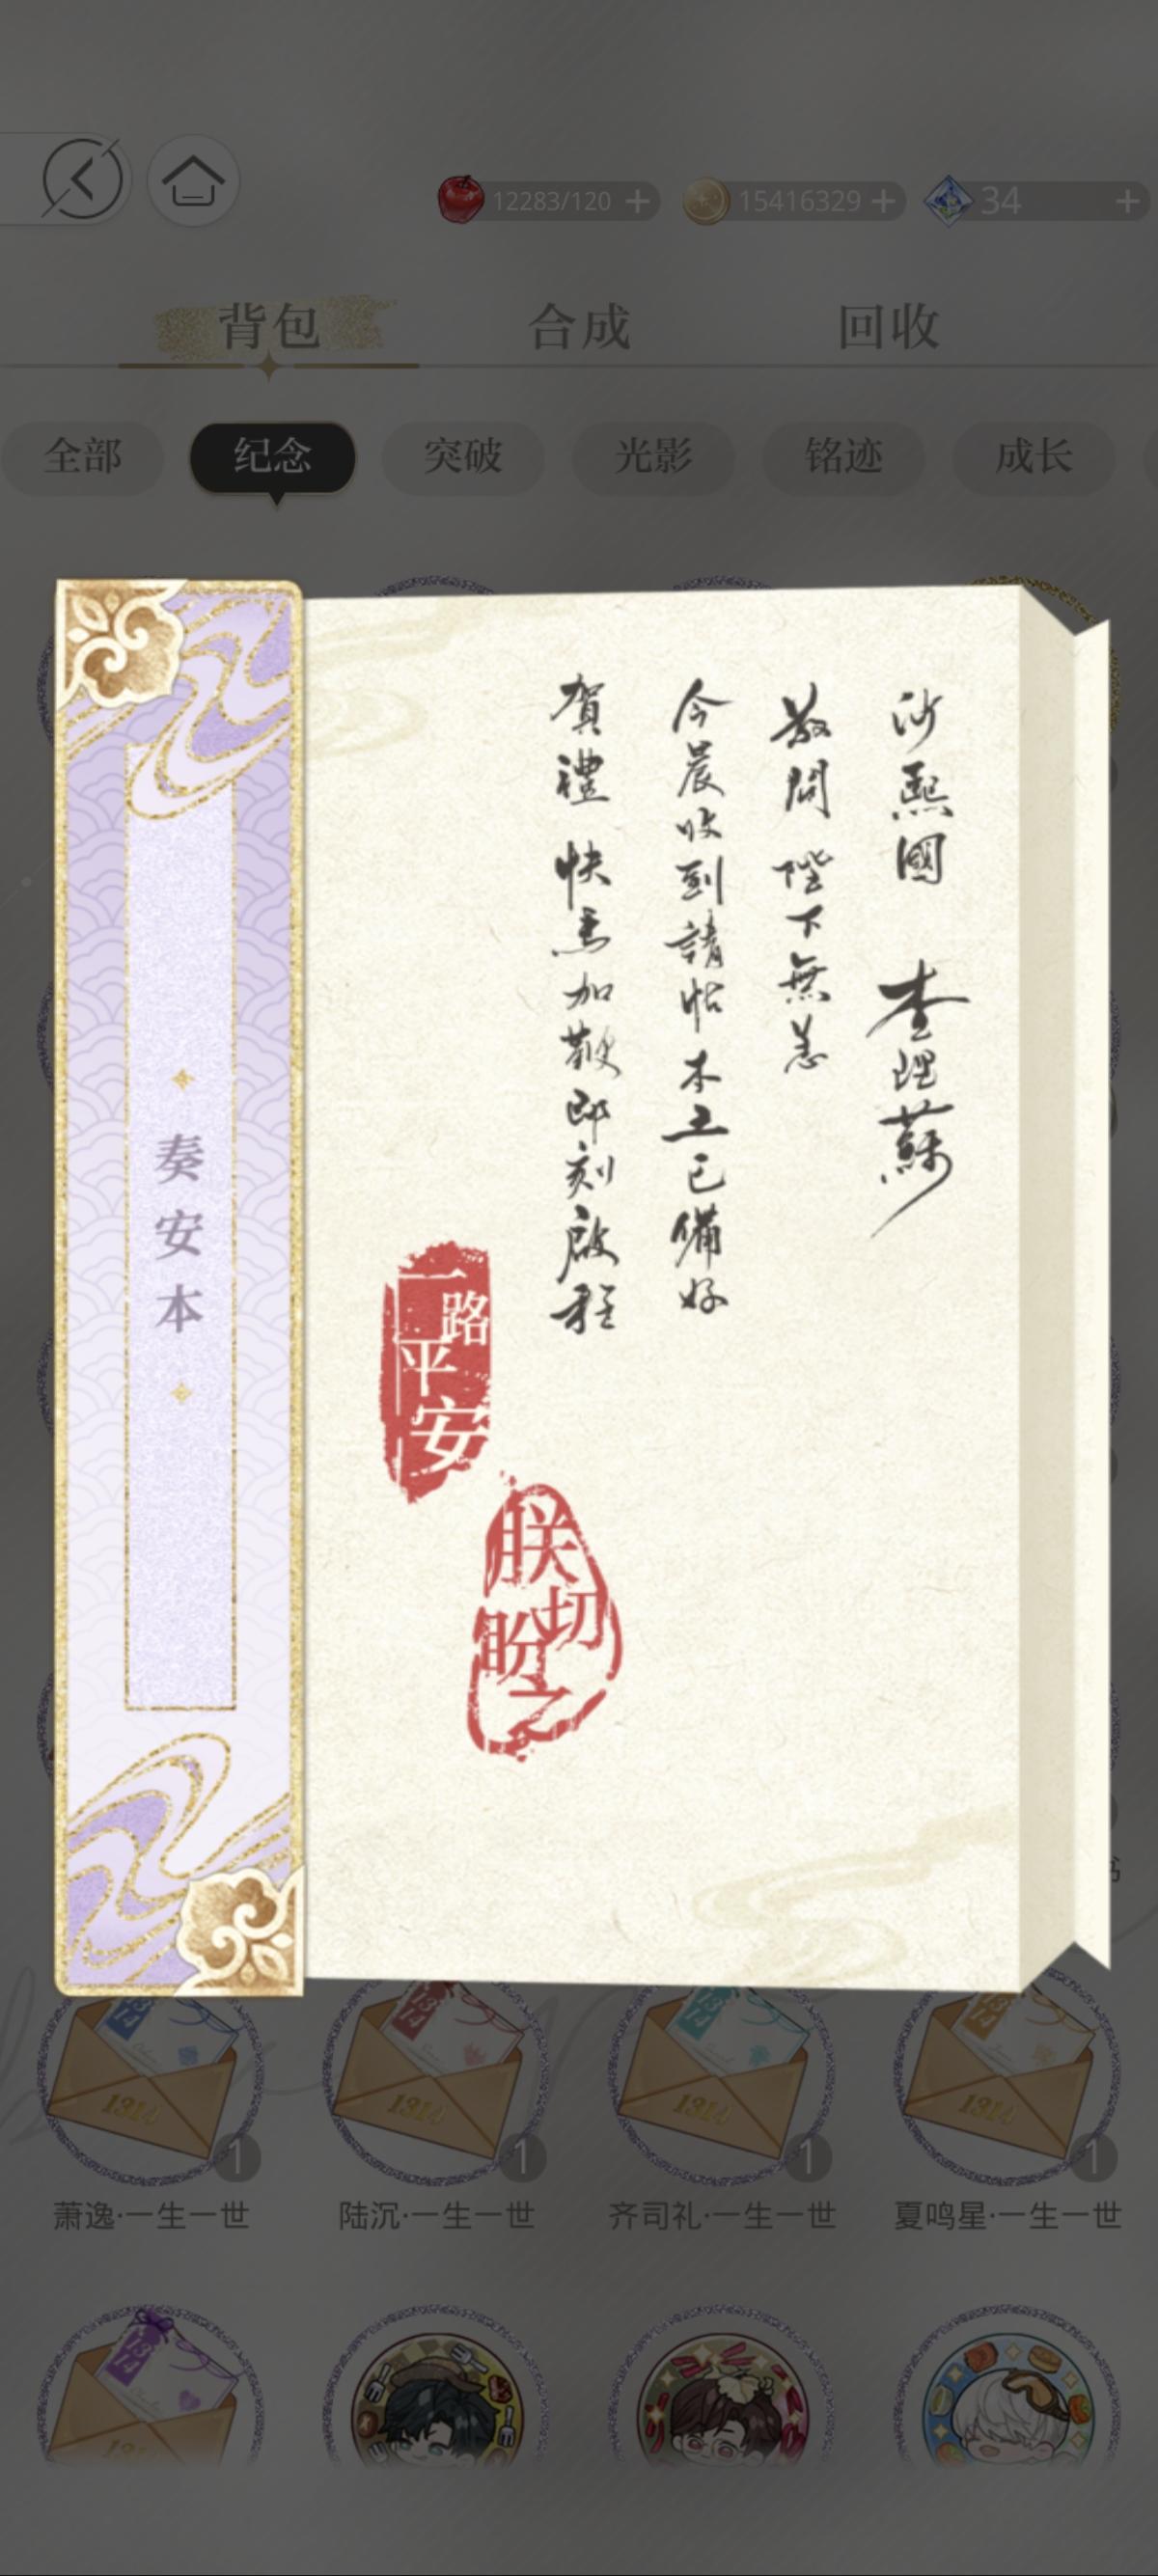 12283/120
15416329
34
背包 合成 回收
全部 纪念 突破 光影 铭迹 成长
沙熙國 查理蘇
敬問陛下無恙
今晨收到請帖本王已備好
賀禮 快馬加鞭即刻啟程
一路平安
朕切盼之
奏安本
书
1314
1314
1314
1314
1
1
1
1
萧逸·一生一世
陆沉·一生一世
齐司礼·一生一世
夏鸣星·一生一世
1314